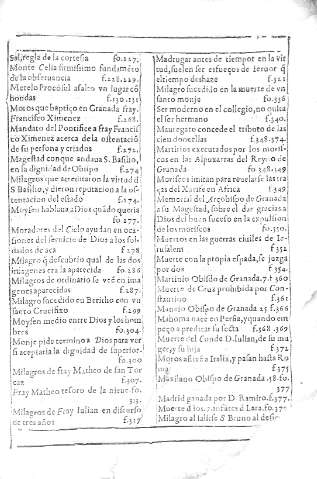 Sal, regla de la cortesia fo.227.
Monte Celia firmissimo fundamẽto
de la obseruancia f.228.229.
Metelo Proconsul asalto vn lugar cõ
hondas f.130.131
Moros que baptiço en Granada fray.
Francisco Ximenez f.268.
Mandato del Pontifice a fray Francis
co Ximenez acerca de la ostentació
de su persona y criados f.272.
Magestad conque andaua S. Basilio,
en la dignidad de Obispo f.274
Milagros que acreditaron la virtud d
S. Basilio, y dieron reputacion a la os-
tentacion del estado f.274.
Moysen hablaua a Dios quãdo queria
fo.277.
Moradores del Cielo ayudan en oca-
siones del seruicio de Dios a los sol-
dados de aca f.278
Milagro q̃ descubrio qual de las dos
imágenes era la aparecida fo.286
Milagros de ordinario se veẽ en ima
genes aparecidas f.287.
Milagro sucedido en Bericho con vn
santo Crucifixo f.299
Moysen medio entre Dios y los hom
bres fo.304.
Monje pide termino a Dios para ver
si aceptaria la dignidad de superior.
fo.309
Milagros de fray Matheo de san Tor
caz f.307.
Fray Matheo tesoro de la nieue fo.
313.
Milagros de Fray Iulian en discurso
de tres años f.317
Madrugar antes de tiempo en la vir
tud, suelen ser esfuerços de feruor q̃
el tiempo deshaze f.321
Milagro sucedido en la muerte de vn
santo monje fo.336
Ser moderno en el collegio, no quita
el ser hermano f.340.
Mauregato concede el tributo de las
cien donzellas f.348.374.
Martirios executados por los moris-
cos en las Alpuxarras del Reyno de
Granada fo 348.349
Moriscos imitan para reuelarse las tra
ças del Xarife en Africa f.349
Memorial del Arçobispo de Granada
a su Magestad, sobre el dar gracias a
Dios del buen sucesso en la expulsion
de los moriscos fo.350.
Muertos en las guerras ciuiles de Ie-
rusalem f.352
Muerte con la propia espada, se juzga
por dos f.354.
Martinio Obispo de Granada.7.f.360
Muerte de Crus prohibida por Con-
stantino f.361
Manto Obispo de Granada.25 f.366
Mahoma nace en Persia, y quando em
peço a predicar su secta f.368.369
Muerte del Conde D. Iulian, de su mu
ger, y su hija f.372
Moyos assuela Italia, y pasan hasta Ro
ma f.375
Mantiano Obispo de Granada.48.fo.
377
Madrid ganada por D Ramiro.f.377.
Muerte d los infantes d Lara.fo.378